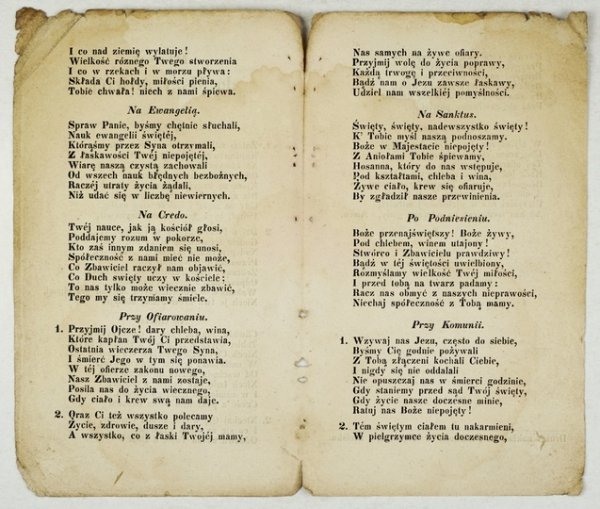 I co nad ziemię wylatuje!
Wielkość róznego Twego stworzenia
I co w rzekach i w morzu pływa:
Składa Ci hołdy, miłości pienia,
Tobie chwała! niech z nami śpiewa.
Na Ewangelią.
Spraw Panie, byśmy chętnie słuchali,
Nauk ewangelii świętéj,
Którąśmy przez Syna otrzymali,
Z łaskawości Twéj niepojętéj,
Wiarę naszą czystą zachowali
Od wszech nauk błędnych bezbożnych,
Raczéj utraty życia żądali,
Niż udać się w liczbę niewiernych.
Na Credo.
Twéj nauce, jak ją kościół głosi,
Poddajemy rozum w pokorze,
Kto zaś innym zdaniem się unosi,
Społeczność z nami mieć nie może,
Co Zbawiciel raczył nam objawić,
Co Duch święty uczy w kościele:
To nas tylko może wiecznie zbawić,
Tego my się trzymamy śmiele.
Przy Ofiarowaniu.
1. Przyjmij Ojcze! dary chleba, wina,
Które kapłan Twój Ci przedstawia,
Ostatnia wieczerza Twego Syna,
I śmierć Jego w tym się ponawia.
W téj ofierze zakonu nowego,
Nasz Zbawiciel z nami zostaje,
Posila nas do życia wiecznego,
Gdy ciało i krew swą nam daje.
2. Oraz Ci też wszystko polecamy
Życie, zdrowie, dusze i dary,
A wszystko, co z łaski Twojéj mamy,
Nas samych na żywe ofiary.
Przyjmij wolę do życia poprawy,
Każdą trwogę i przeciwności,
Bądź nam o Jezu zawsze łaskawy,
Udziel nam wszelkiéj pomyślności.
Na Sanktus.
Święty, święty, nadewszystko święty!
K' Tobie myśl naszą podnoszamy.
Boże w Majestacie niepojęty!
Z Aniołami Tobie śpiewamy,
Hosanna, który do nas wstępuje,
Pod kształtami, chleba i wina,
Żywe ciało, krew się ofiaruje,
By zgładził nasze przewinienia.
Po Podniesieniu.
Boże przenajświętszy! Boże żywy,
Pod chlebem, winem utajony!
Stwórco i Zbawicielu prawdziwy!
Bądź w téj świętości uwielbiony,
Rozmyślamy wielkość Twéj miłości,
I przed tobą na twarz padamy:
Racz nas obmyć z naszych nieprawości,
Niechaj społeczność z Tobą mamy.
Przy Komunii.
1. Wzywaj nas Jezu, często do siebie,
Byśmy Cię godnie pożywali
Z Tobą złączeni kochali Ciebie,
I nigdy się nie oddalali
Nie opuszczaj nas w śmierci godzinie,
Gdy staniemy przed sąd Twój święty,
Gdy życie nasze doczesne minie,
Ratuj nas Boże niepojęty!
2. Tém świętym ciałem tu nakarmieni,
W pielgrzymce życia doczesnego,